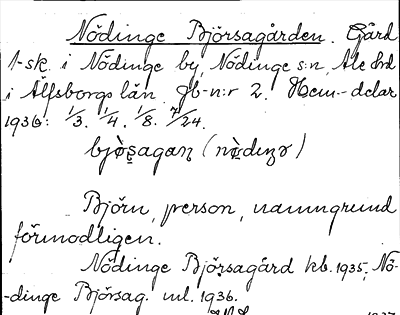 Nödinge Björsagården. Gård
1-sk. i Nödinge by, Nödinge s:n, Ale hd
i Älfsborgs län. Jb-n:r 2. Hem.-delar
1936: 1/3. 1/4. 1/8. 7/24.
(nö̀dıŋə)
Björn, person, namngrund
förmodligen.
Nödinge Björsagård kb. 1935, Nö-
-dinge Björsag. ml. 1936.